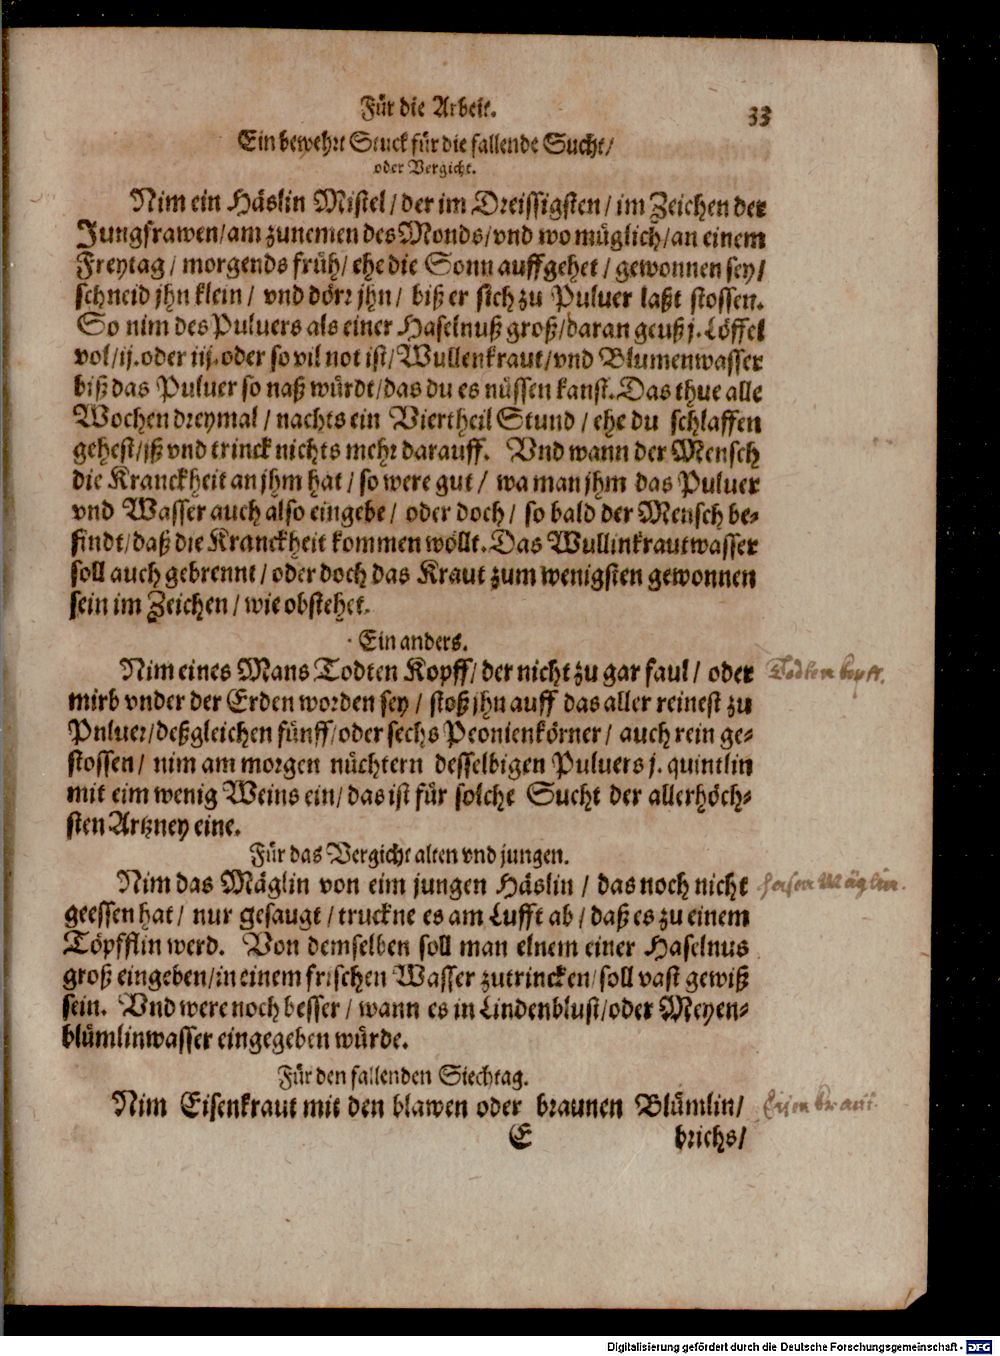 Für die Arbeit. 33
Ein bewehrt Stuck für die fallende Sucht/
oder Vergicht.
Nim ein Häslin Mistel/ der im Dreissigsten/ im Zeichen der
Jungfrawen/ am zunemen des Monds/ vnd wo müglich/ an einem
Freytag/ morgends früh/ ehe die Sonn auffgehet/ gewonnen sey/
schneid jhn klein/ vnd dörr jhn/ biß er sich zu Puluer laßt stossen.
So nim des Puluers als einer Haselnuß groß/ daran geuß j. Löffel
vol/ ij. oder iij. oder so vil not ist/ Wullenkraut/ vnd Blumenwasser
biß das Puluer so naß würdt/ das du es nüssen kanst. Das thue alle
Wochen dreymal/ nachts ein Viertheil Stund/ ehe du schlaffen
gehest/ iß vnd trinck nichts mehr darauff. Vnd wann der Mensch
die Kranckheit an jhm hat/ so were gut/ wa man jhm das Puluer
vnd Wasser auch also eingebe/ oder doch/ so bald der Mensch be-
findt/ daß die Kranckheit kommen wöllt. Das Wullinkrautwasser
soll auch gebrennt/ oder doch das Kraut zum wenigsten gewonnen
sein im Zeichen/ wie obstehet.
Ein anders.
Nim eines Mans Todten Kopff/ der nicht zu gar faul/ oder
Todten kopff.
mirb vnder der Erden worden sey/ stoß jhn auff das aller reinest zu
Pnluer/ deßgleichen fünff/ oder sechs Peonienkörner/ auch rein ge-
stossen/ nim am morgen nüchtern desselbigen Puluers j. quintlin
mit eim wenig Weins ein/ das ist für solche Sucht der allerhöch-
sten Artzney eine.
Für das Vergicht alten vnd jungen.
Nim das Mäglin von eim jungen Häslin/ das noch nicht
Hasen Mäglin.
geessen hat/ nur gesaugt/ truckne es am Lufft ab/ daß es zu einem
Töpfflin werd. Von demselben soll man elnem einer Haselnus
groß eingeben/ in einem frischen Wasser zutrincken/ soll vast gewiß
sein. Vnd were noch besser/ wann es in Lindenblust/ oder Meyen-
blümlinwasser eingegeben würde.
Für den fallenden Siechtag.
Nim Eisenkraut mit den blawen oder braunen Blümlin/
Eisenkraut.
E brichs/
Digitalisierung gefördert durch die Deutsche Forschungsgemeinschaft - DFG